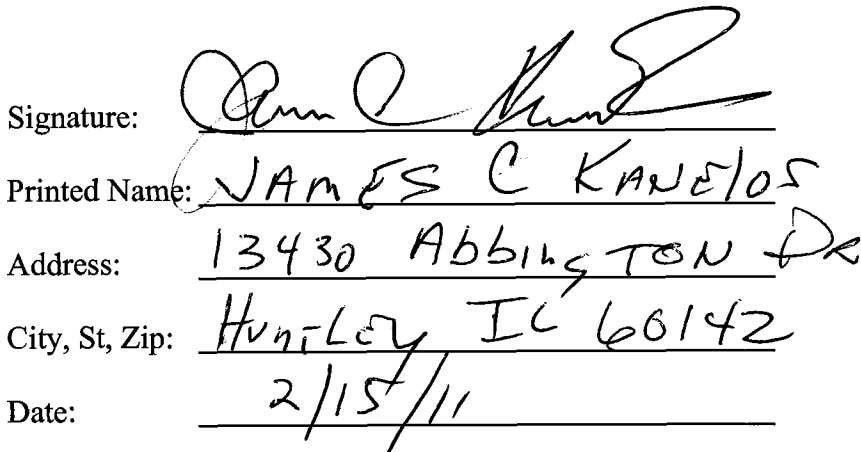 Signature:
Printed Name: JAMES C KANElOS
Address: 13430 AbbingTON DR
City, St, Zip: HunTLEy IL 60142
Date: 2/15/11